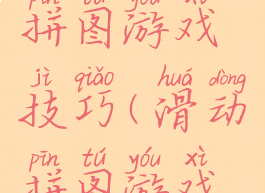 pīn tú yóu xì
拼图游戏
jì qiǎo huá dòng
技巧(滑动
pīn tú yóu xì
拼图游戏